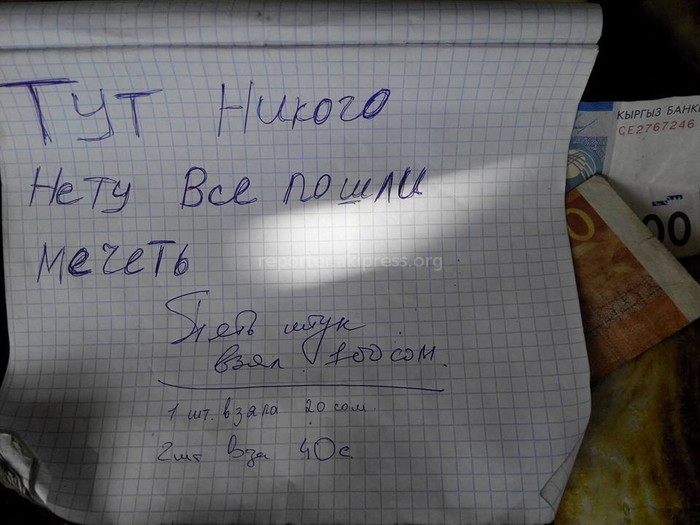 Тут Никого
Нету Все пошли
мечеть
Пять штук
взял 100 сом.
1 шт. взяла 20 сом.
2шт Взa 40с
КЫРГЫЗ БАНКИ
CE2767246
00
reporter.akipress.org